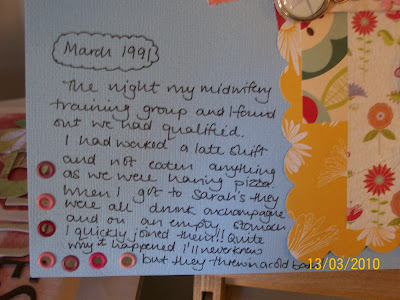 March 1991
The night my midwifery
training group and I found
out we had qualified.
I had worked a late shift
and not eaten anything
as we were having pizza.
When I got to Sarah's they
were all drunk on champagne
and on an empty stomach
I quickly joined them!! Quite
why it happened I'll never know
but they threw me in a cold bath
13/03/2010